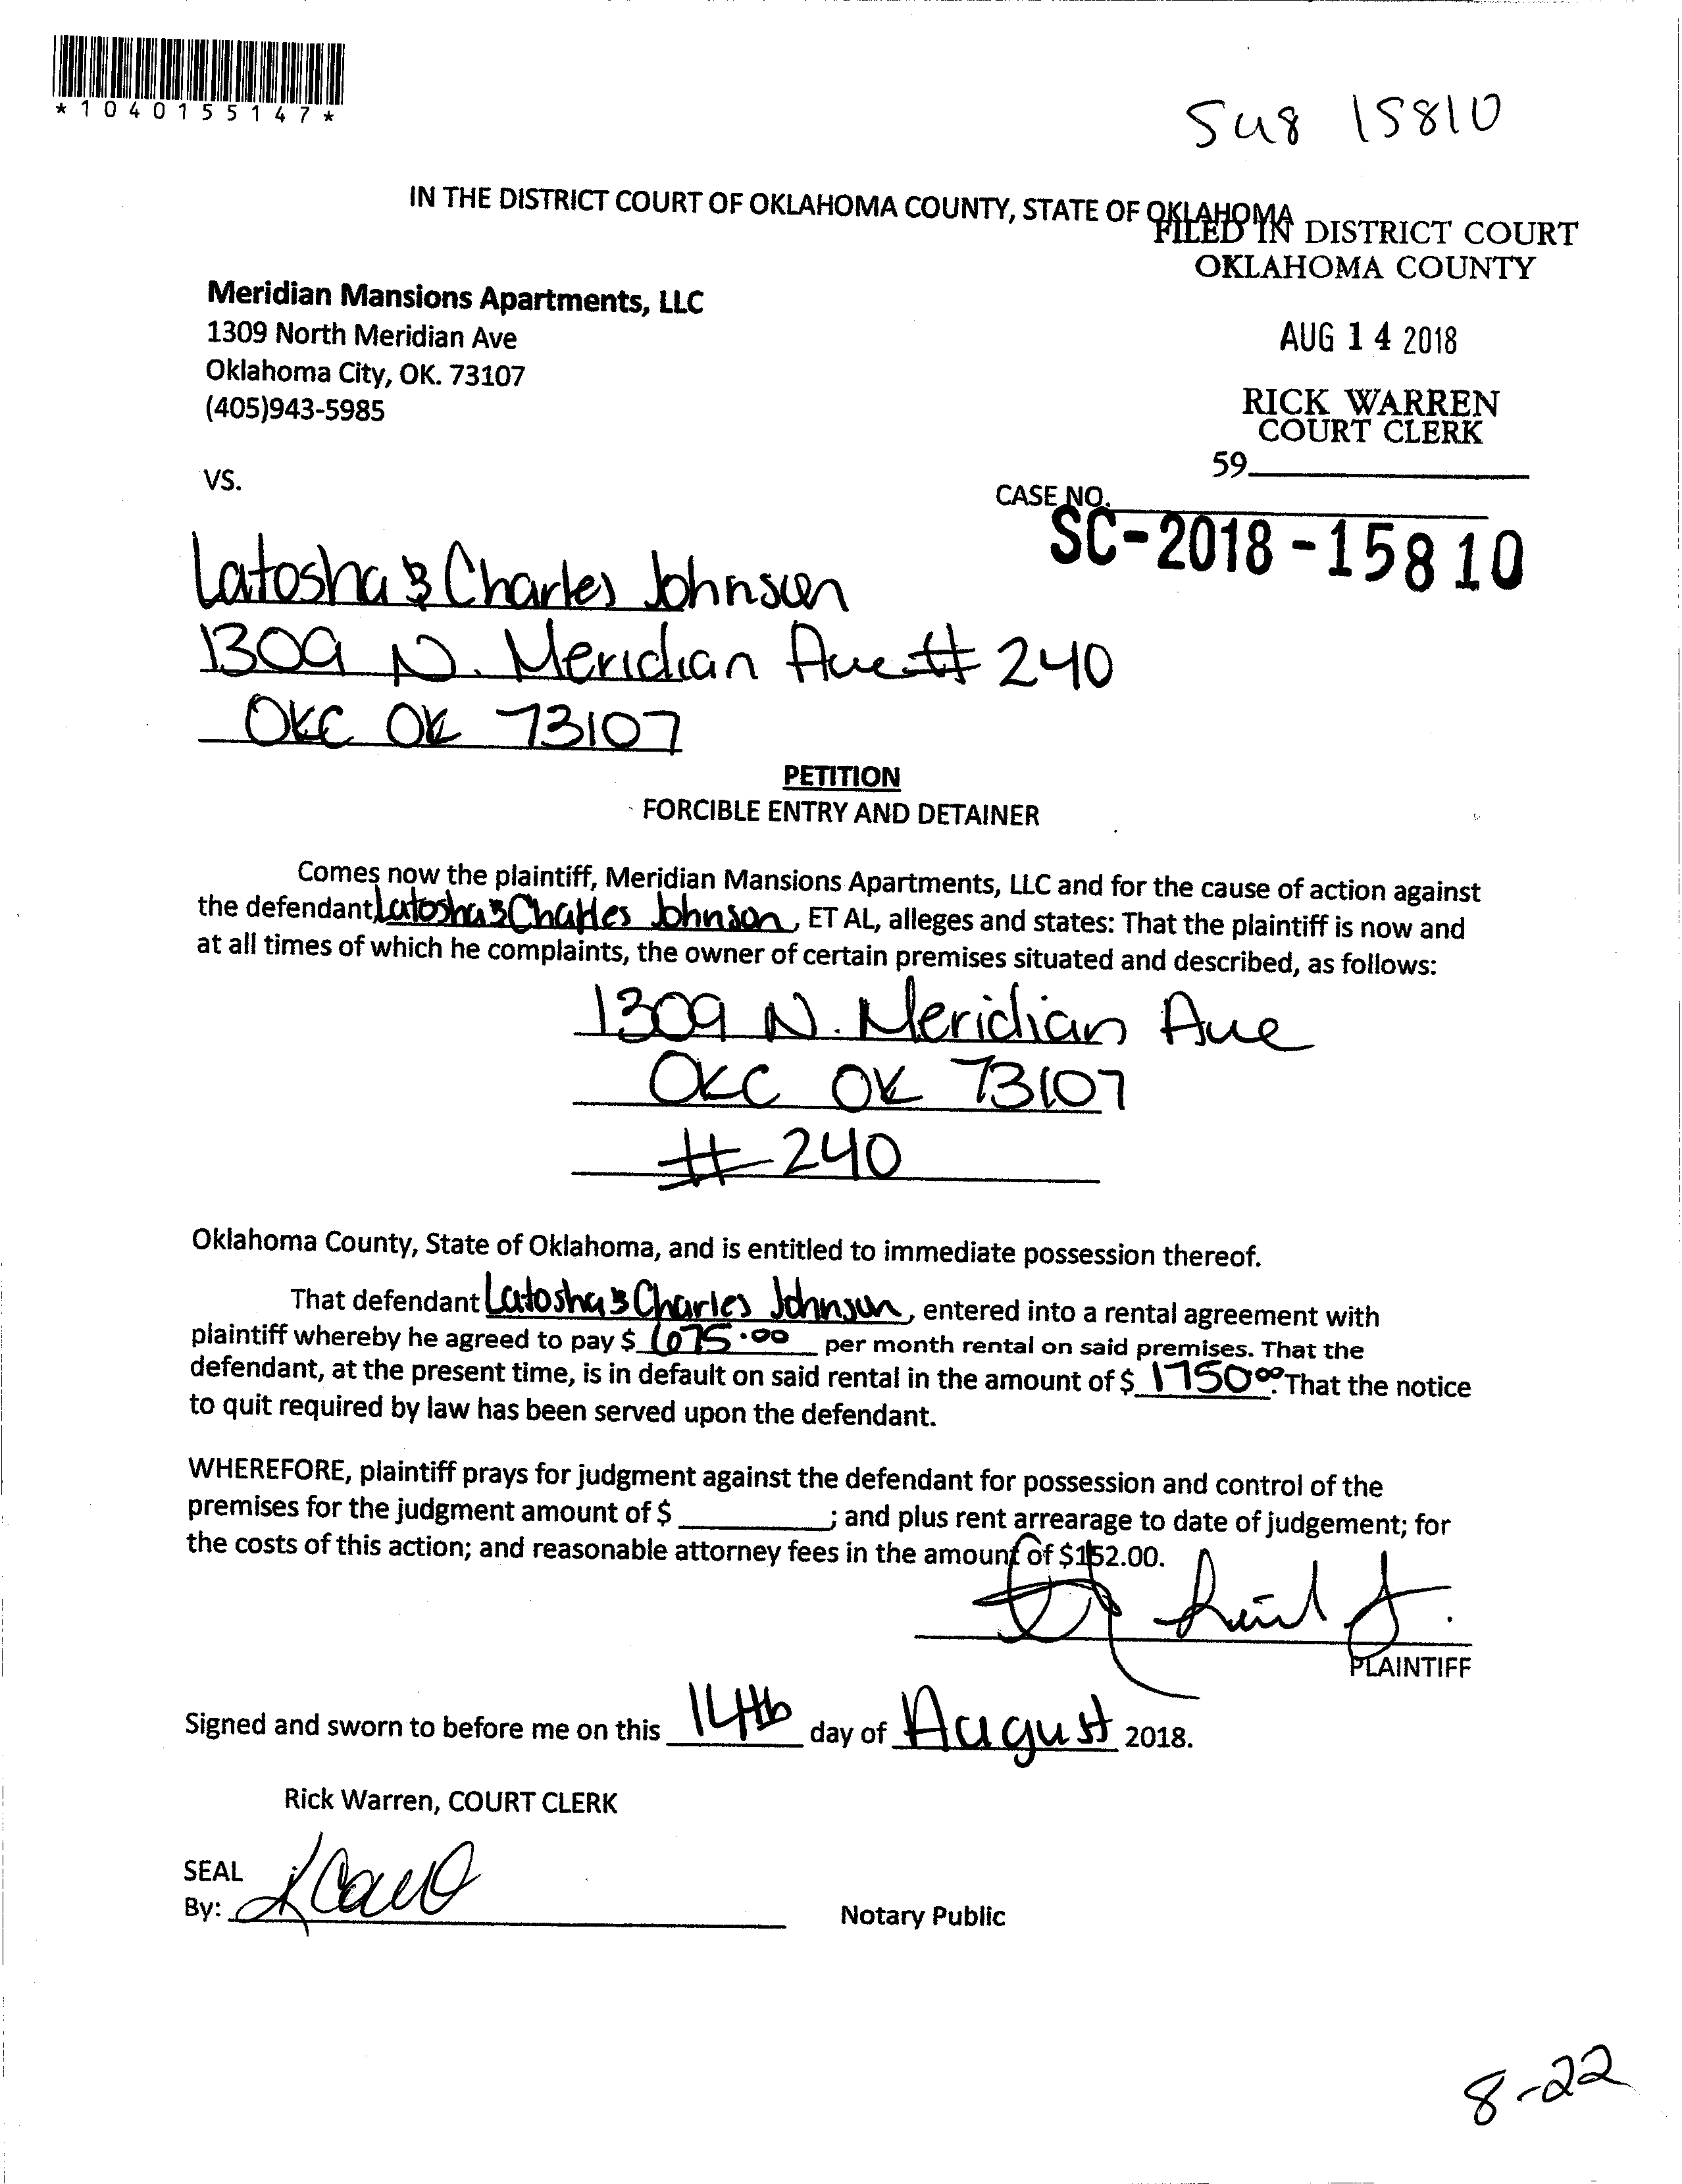 *1040155147*
15810
IN THE DISTRICT COURT OF OKLAHOMA COUNTY, STATE OF OKLAHOMA
FILED IN DISTRICT COURT
OKLAHOMA COUNTY
Meridian Mansions Apartments, LLC
1309 North Meridian Ave
Oklahoma City, OK. 73107
(405)943-5985
AUG 14 2018
RICK WARREN
COURT CLERK
59
VS.
CASE NO.
SC-2018-15810
Latosha & Charles Johnson
1309 N. Meridian Ave # 240
OKC OK 73107
PETITION
FORCIBLE ENTRY AND DETAINER
Comes now the plaintiff, Meridian Mansions Apartments, LLC and for the cause of action against
the defendant, Latosha & Charles Johnson, ET AL, alleges and states: That the plaintiff is now and
at all times of which he complaints, the owner of certain premises situated and described, as follows:
1309 N. Meridian Ave
OKC OK 73107
# 240
Oklahoma County, State of Oklahoma, and is entitled to immediate possession thereof.
That defendant Latosha & Charles Johnson, entered into a rental agreement with
plaintiff whereby he agreed to pay $ 675.00 per month rental on said premises. That the
defendant, at the present time, is in default on said rental in the amount of $ 1750.00. That the notice
to quit required by law has been served upon the defendant.
WHEREFORE, plaintiff prays for judgment against the defendant for possession and control of the
premises for the judgment amount of $ ; and plus rent arrearage to date of judgement; for
the costs of this action; and reasonable attorney fees in the amount of $152.00.
PLAINTIFF
Signed and sworn to before me on this 14th day of August 2018.
Rick Warren, COURT CLERK
SEAL
By:
Notary Public
8-22